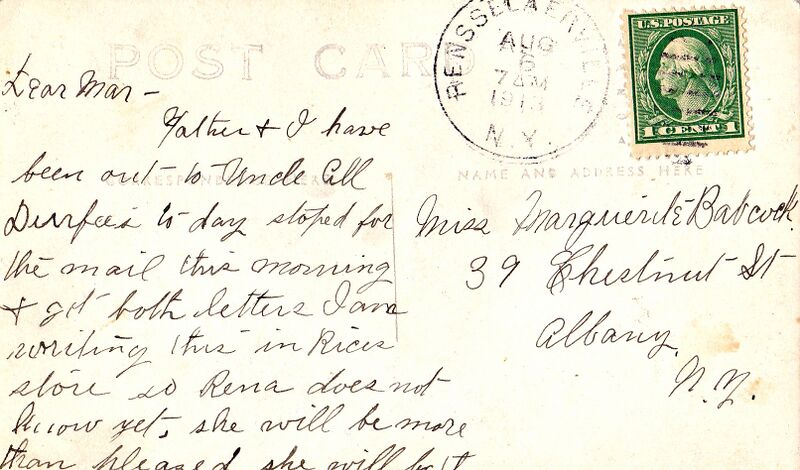 POST CARD
RENSSELAERVILLE
AUG
6
7 AM
1913
N.Y.
U.S. POSTAGE
1 CENT 1
Dear Mar -
Father & I have
been out to Uncle All
Durfee's to day stoped for
the mail this morning
& got both letters I am
writing this in Rices
store so Rena does not
know yet, she will be more
than pleased she will
CORRESPONDENCE HERE
NAME AND ADDRESS HERE
Miss Marguerite Babcock
39 Chestnut St
Albany,
N.Y.